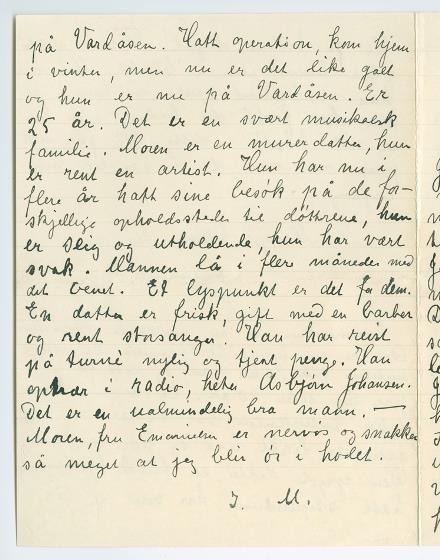 på Vardåsen. Hatt operation, kom hjem
i vinter, men nu er det like galt
og hun er nu på Vardåsen. Er
25 år. Det er en svært musikalsk
familie. Moren er en murerdatter, hun
er rent en artist. Hun har nu i
flere år hatt sine besøk på de for-
skjellige opholdssteder til døttrene, hun
er seig og utholdende, hun har vært
svak. Mannen lå i flere måneder med
det benet. Et lyspunkt er det for dem.
En datter er frisk, gift med en barber
og rent storsanger. Han har reist
på turné nylig og tjent penge. Han
i radio, heter Asbjørn Johansen.
Det er en ualmindelig bra mann. —
Moren, fru er nervøs og snakker
så meget at jeg blir ør i hodet.
I. M.